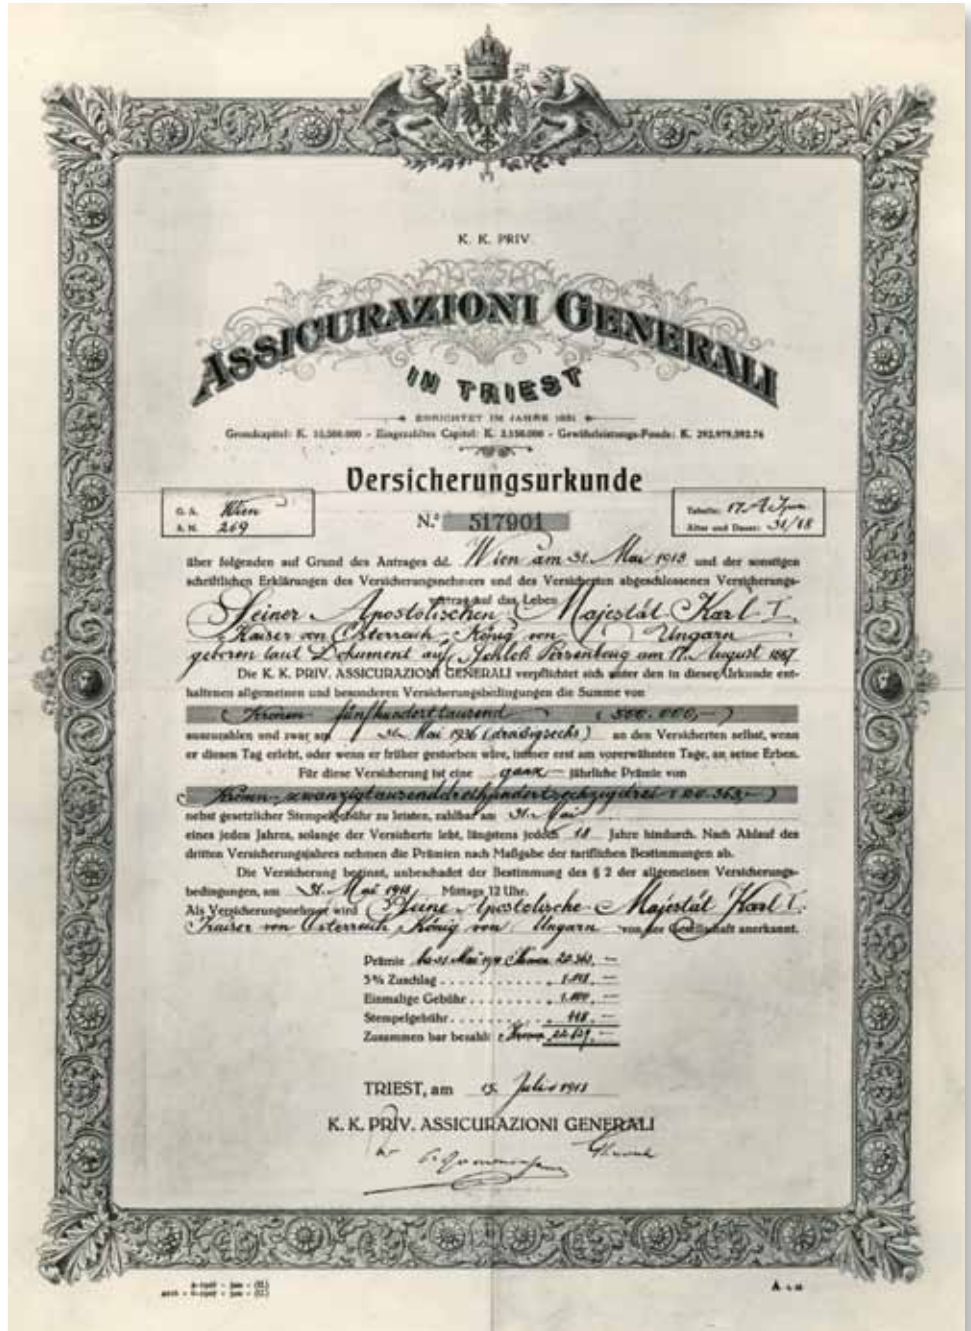 K. K. PRIV.
ASSICURAZIONI GENERALI
IN TRIEST
ERRICHTET IM JAHRE 1831
Grundkapital: K. - Eingezahltes Capital: K. 3,150.000 - Gewährleistungs-Fonds: K.
Versicherungsurkunde
G. A. Wien
A. N. 269
N.º 517901
Tabelle: 17.
Alter und Dauer: 31/18
über folgenden auf Grund des Antrages dd. Wien am 31. Mai 1918 und der sonstigen
schriftlichen Erklärungen des Versicherungsnehmers und des Versicherten abgeschlossenen Versicherungs-
vertrag auf das Leben
Seiner Apostolischen Majestät Karl I.
Kaiser von Österreich, König von Ungarn
geboren laut Dokument auf Schloß Persenbeug am 17. August 1887
Die K. K. PRIV. ASSICURAZIONI GENERALI verpflichtet sich unter den in dieser Urkunde ent-
haltenen allgemeinen und besonderen Versicherungsbedingungen die Summe von
Kronen fünfhunderttausend (500.000,—)
auszuzahlen und zwar am 31. Mai 1936 (dreißigsechs) an den Versicherten selbst, wenn
er diesen Tag erlebt, oder wenn er früher gestorben wäre, immer erst am vorerwähnten Tage, an seine Erben.
Für diese Versicherung ist eine ganz jährliche Prämie von
Kronen zwanzigtausenddreihundertsechzigdrei (20.363,—)
nebst gesetzlicher Stempelgebühr zu leisten, zahlbar am 31. Mai
eines jeden Jahres, solange der Versicherte lebt, längstens jedoch 18 Jahre hindurch. Nach Ablauf des
dritten Versicherungsjahres nehmen die Prämien nach Maßgabe der tariflichen Bestimmungen ab.
Die Versicherung beginnt, unbeschadet der Bestimmung des § 2 der allgemeinen Versicherungs-
bedingungen, am 31. Mai 1918 Mittags 12 Uhr.
Als Versicherungsnehmer wird Seine Apostolische Majestät Karl I.
Kaiser von Österreich, König von Ungarn von der Gesellschaft anerkannt.
Prämie Kronen 20.363,—
5% Zuschlag 1.018,—
Einmalige Gebühr 1.000,—
Stempelgebühr
Zusammen bar bezahlt: Kronen 22.829,—
TRIEST, am 15. Julio 1918
K. K. PRIV. ASSICURAZIONI GENERALI